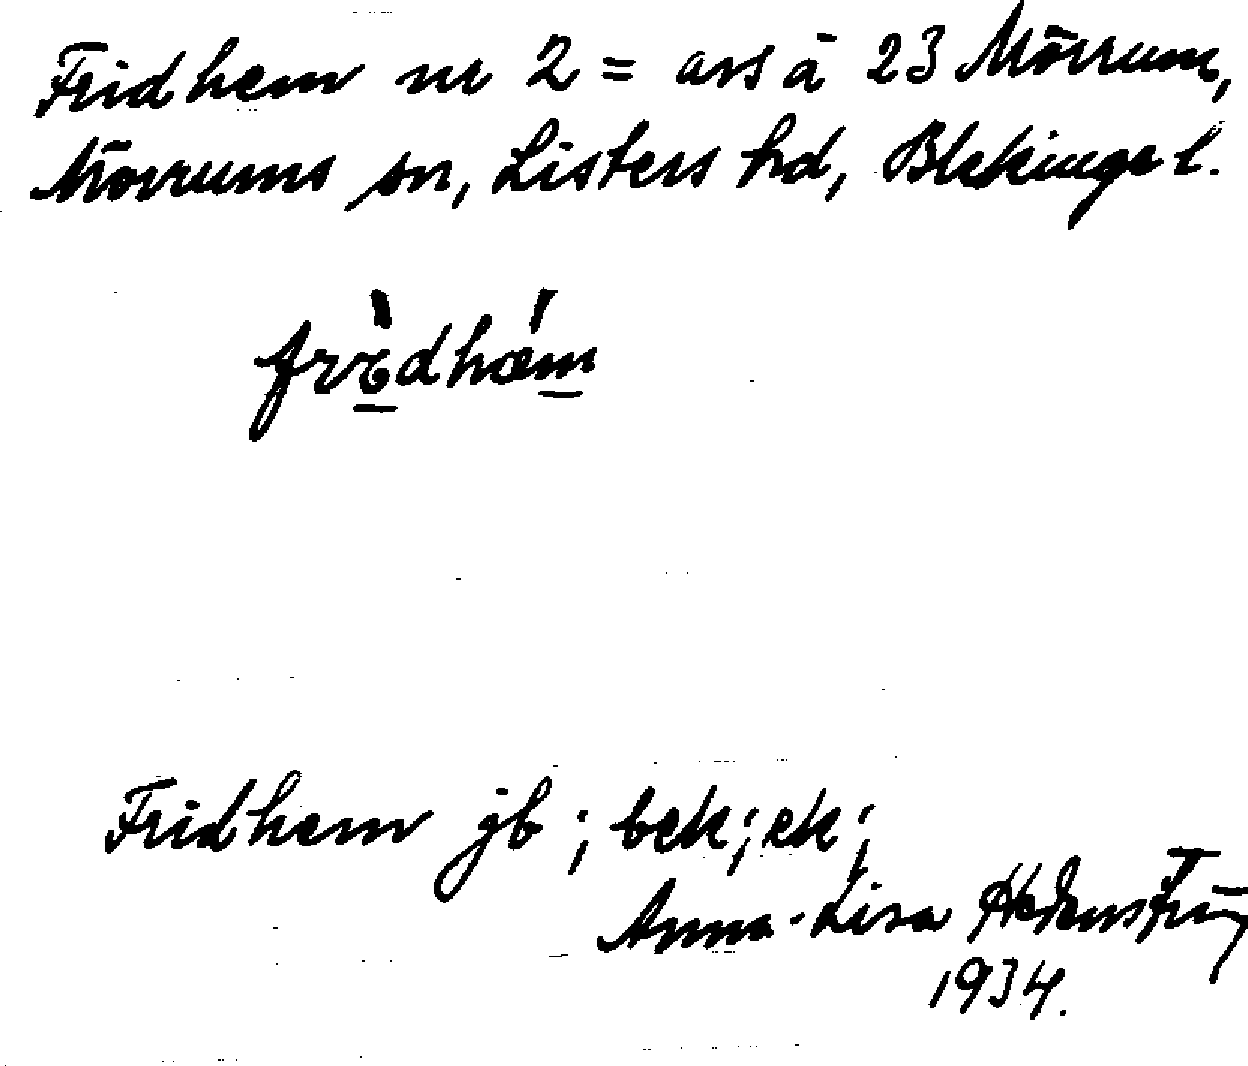 Fridhem nr 2 = avs å 23 Mörrum,
Mörrums sn, Listers hd, Blekinge l.
Fridhem jb ; bek ; ek ;
Anna-Lisa
1934.